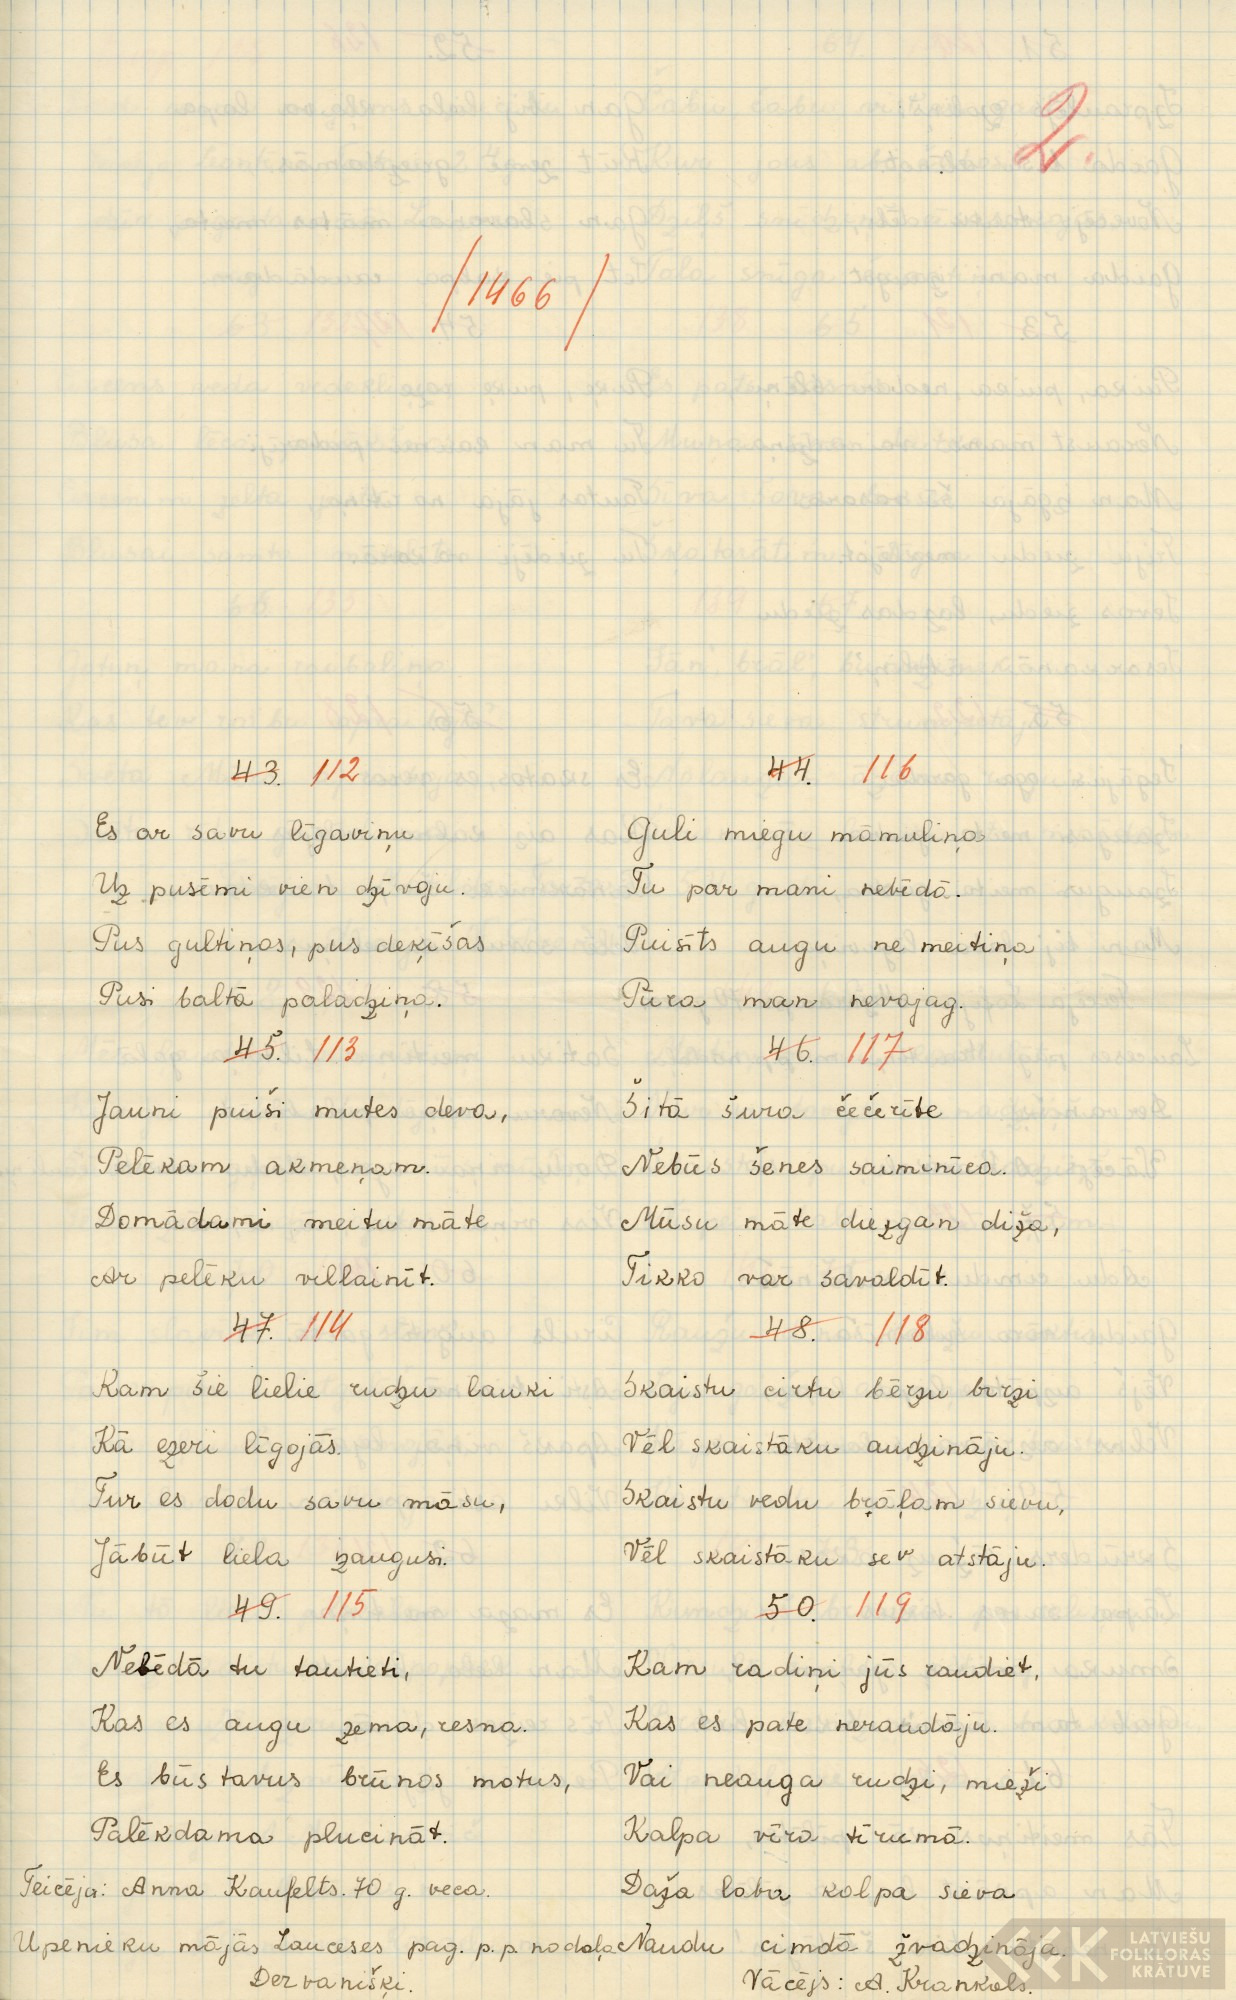 2.
/1466/
43. 112
Es ar savu līgaviņu
Uz pusēmi vien dzīvoju.
Pus gultiņas, pus deķīšas
Pusi baltā paladziņa.
45. 113
Jauni puiši mutes deva,
Pelēkam akmeņam.
Domādami meitu māte
Ar pelēku villainīt.
47. 114
Kam šie lielie rudzu lauki
Kā ezeri līgojās.
Tur es dodu savu māsu,
Jābūt liela zaugusi.
49. 115
Nebēdā tu tautieti,
Kas es augu zema, resna.
Es būs tavus brūnos matus,
Palēkdama plucināt.
Teicēja: Anna Kaufelts. 70 g. veca.
Upenieku mājās Lauceses pag. p. p. nodaļa
Dervanišķi.
44. 116
Guli miegu māmuliņa
Tu par mani nebēdā.
Puisīts augu ne meitiņa
Pūra man nevajag.
46. 117
Šitā šura čečerīte
Nebūs šenes saiminīca.
Mūsu māte diezgan diža,
Tikko var savaldīt.
48. 118
Skaistu cirtu bērzu birzi
Vēl skaistāku audzināju.
Skaistu vedu bŗāļam sievu,
Vēl skaistāku sev atstāju.
50. 119
Kam radiņi jūs raudiet,
Kas es pate neraudāju.
Vai neauga rudzi, mieži
Kalpa vīra tīrumā.
Daža laba kalpa sieva
Naudu cimdā žvadzināja.
Vācējs: A. Krankals.
LATVIEŠU
FOLKLORAS
KRĀTUVE